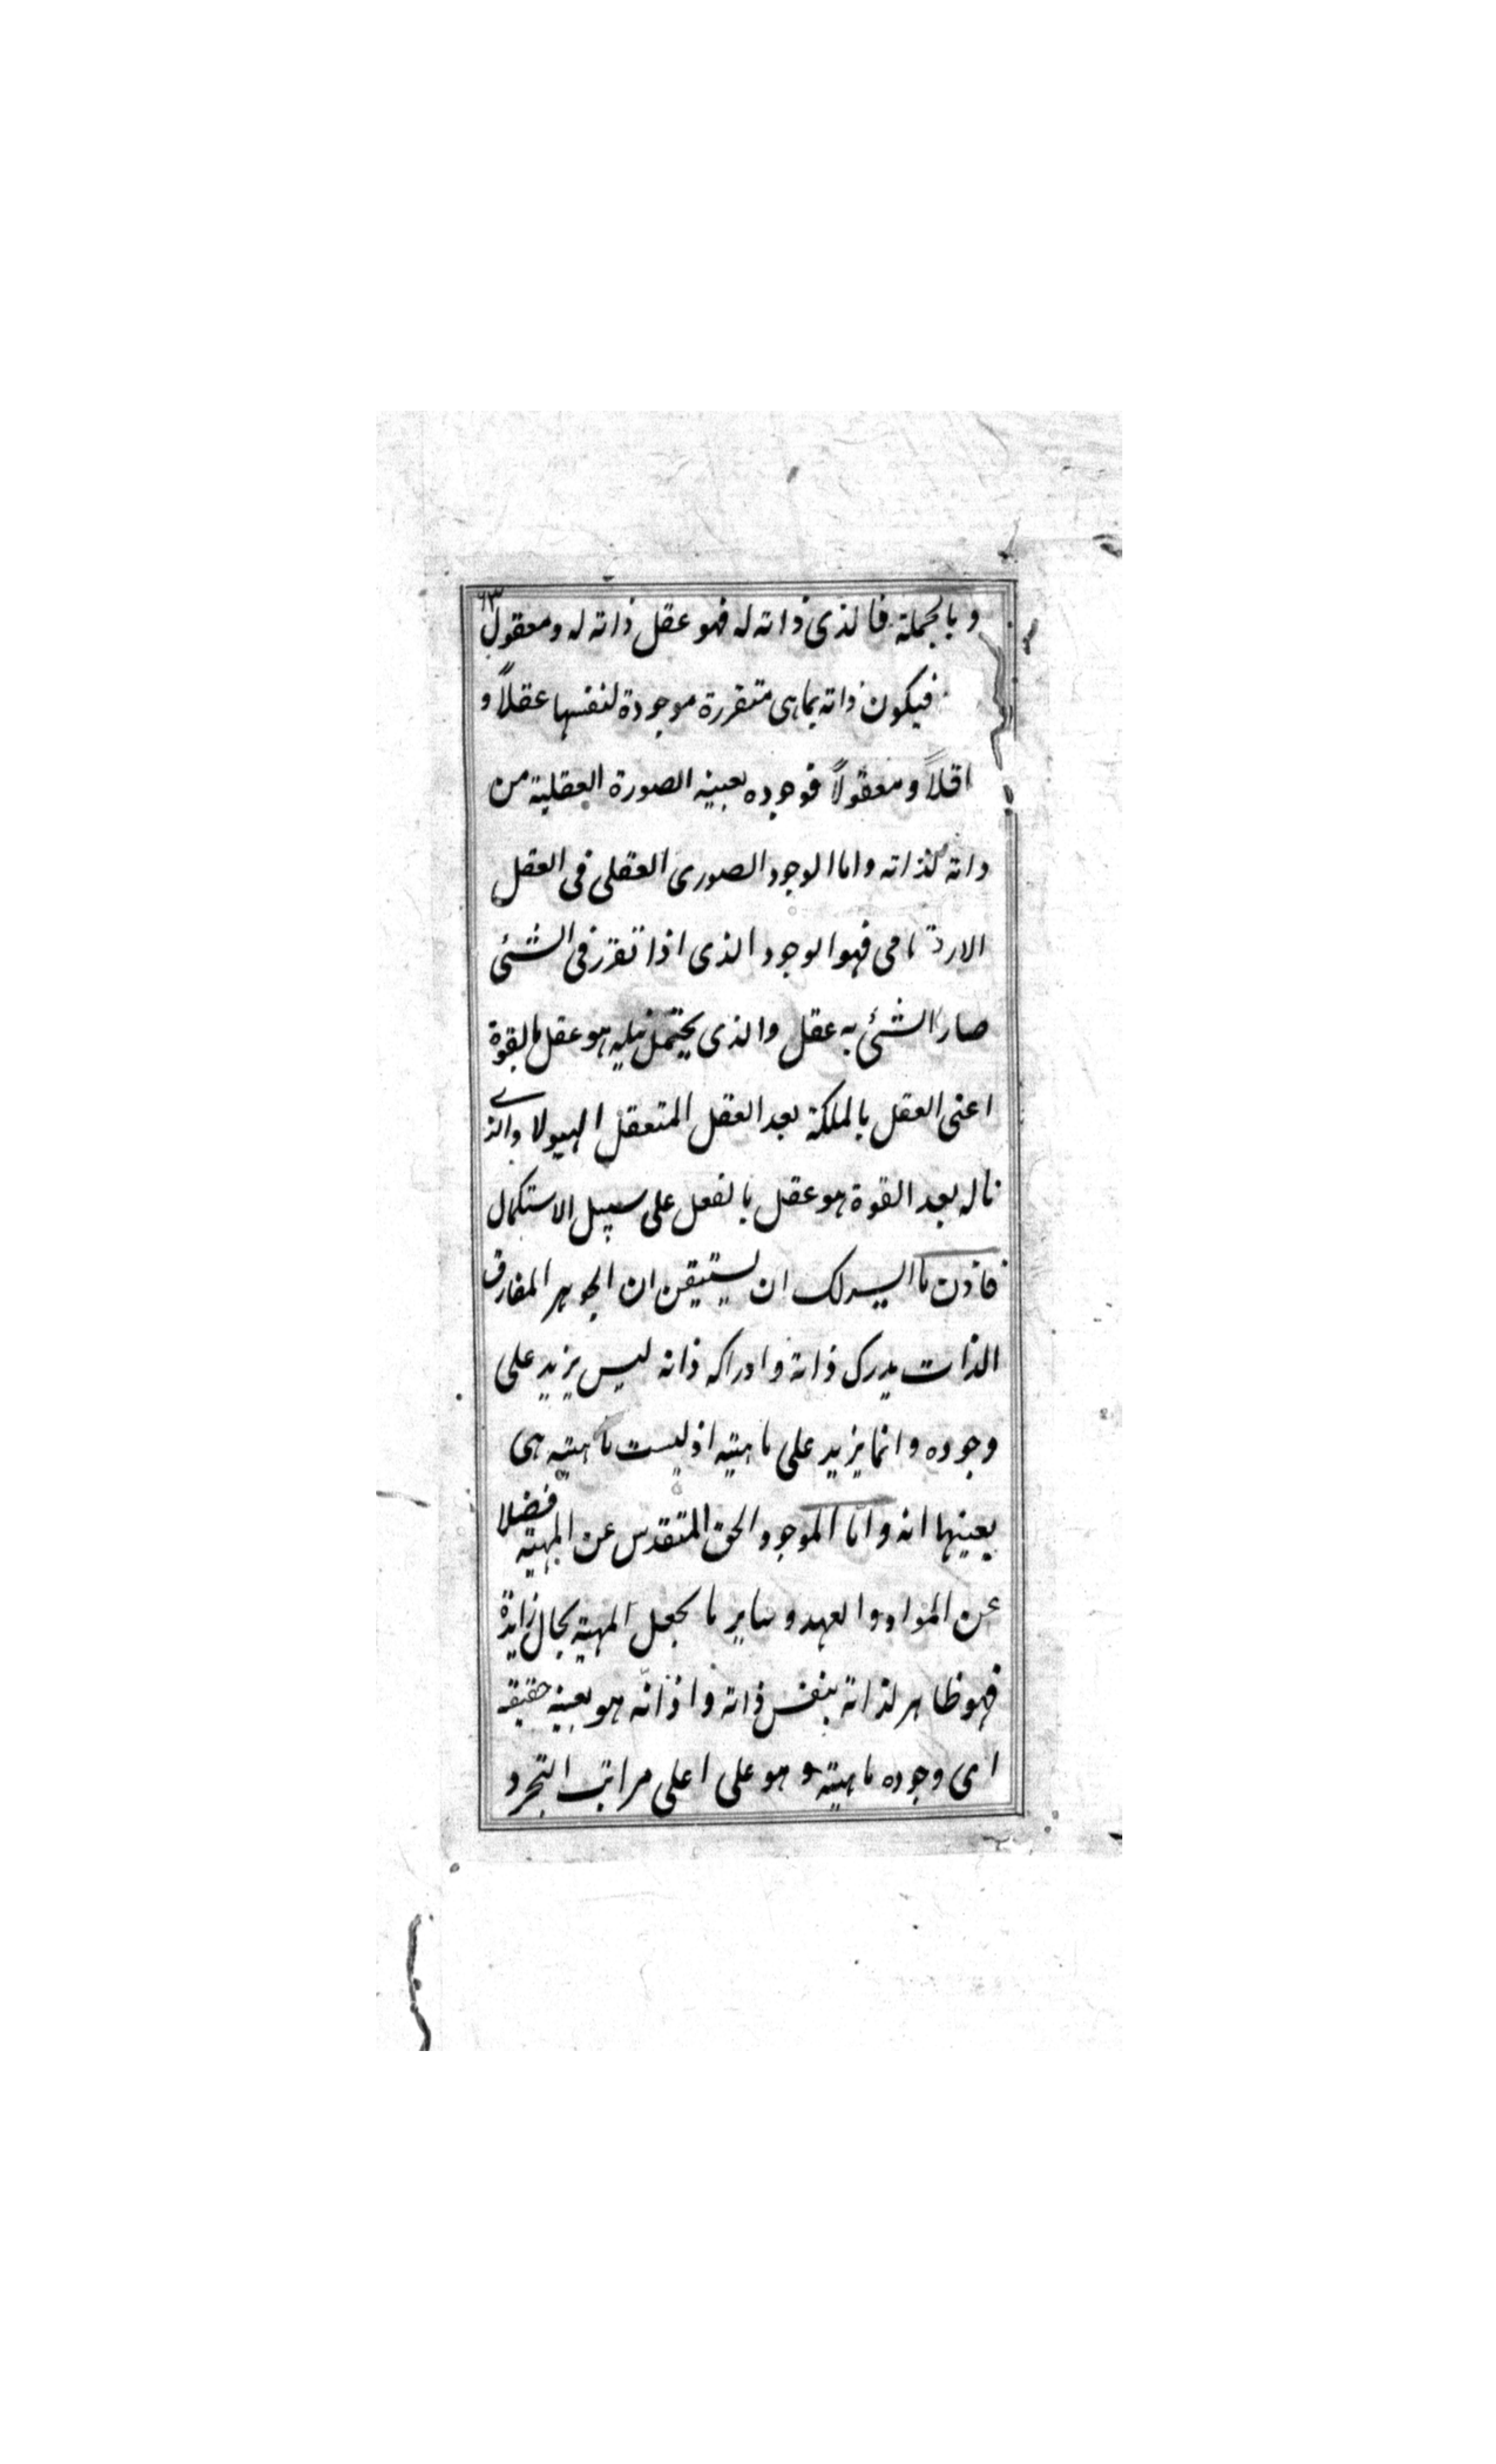 ٦٣
و بالجملة فالذى ذاته له فهو عقل ذاته له و معقول
فيكون ذاته بما هى متقررة موجودة لنفسها عقلاً و
اقلاً و معقولاً فوجوده بعينه الصورة العقلية من
ذاته لذاته و اما الوجود الصورى العقلى فى العقل
فهو الوجود الذى اذا تقرر فى الشئى
صار الشئى به عقل و الذى يحتمل نيله هو عقل بالقوة
اعنى العقل بالملكة بعد العقل المتعقل الهيولا والذى
ناله بعد القوة هو عقل بالفعل على سبيل الاستكمال
فاذن ما السر لك ان ليستيقن ان الجوهر المفارق
الذات يدرك ذاته و ادراكه ذاته ليس يزيد على
وجوده و انما يزيد على ماهيته اذ ليست ماهيته هى
بعينها انه و اما الموجود الحق المتقدس عن المهية فضلا
عن المواد و العهد و ساير ما يجعل المهية بحال زايدة
فهو ظاهر لذاته بنفس ذاته و اذ انه هو بعينه حقيقة
اى وجوده ماهيته و هو على اعلى مراتب التجرد